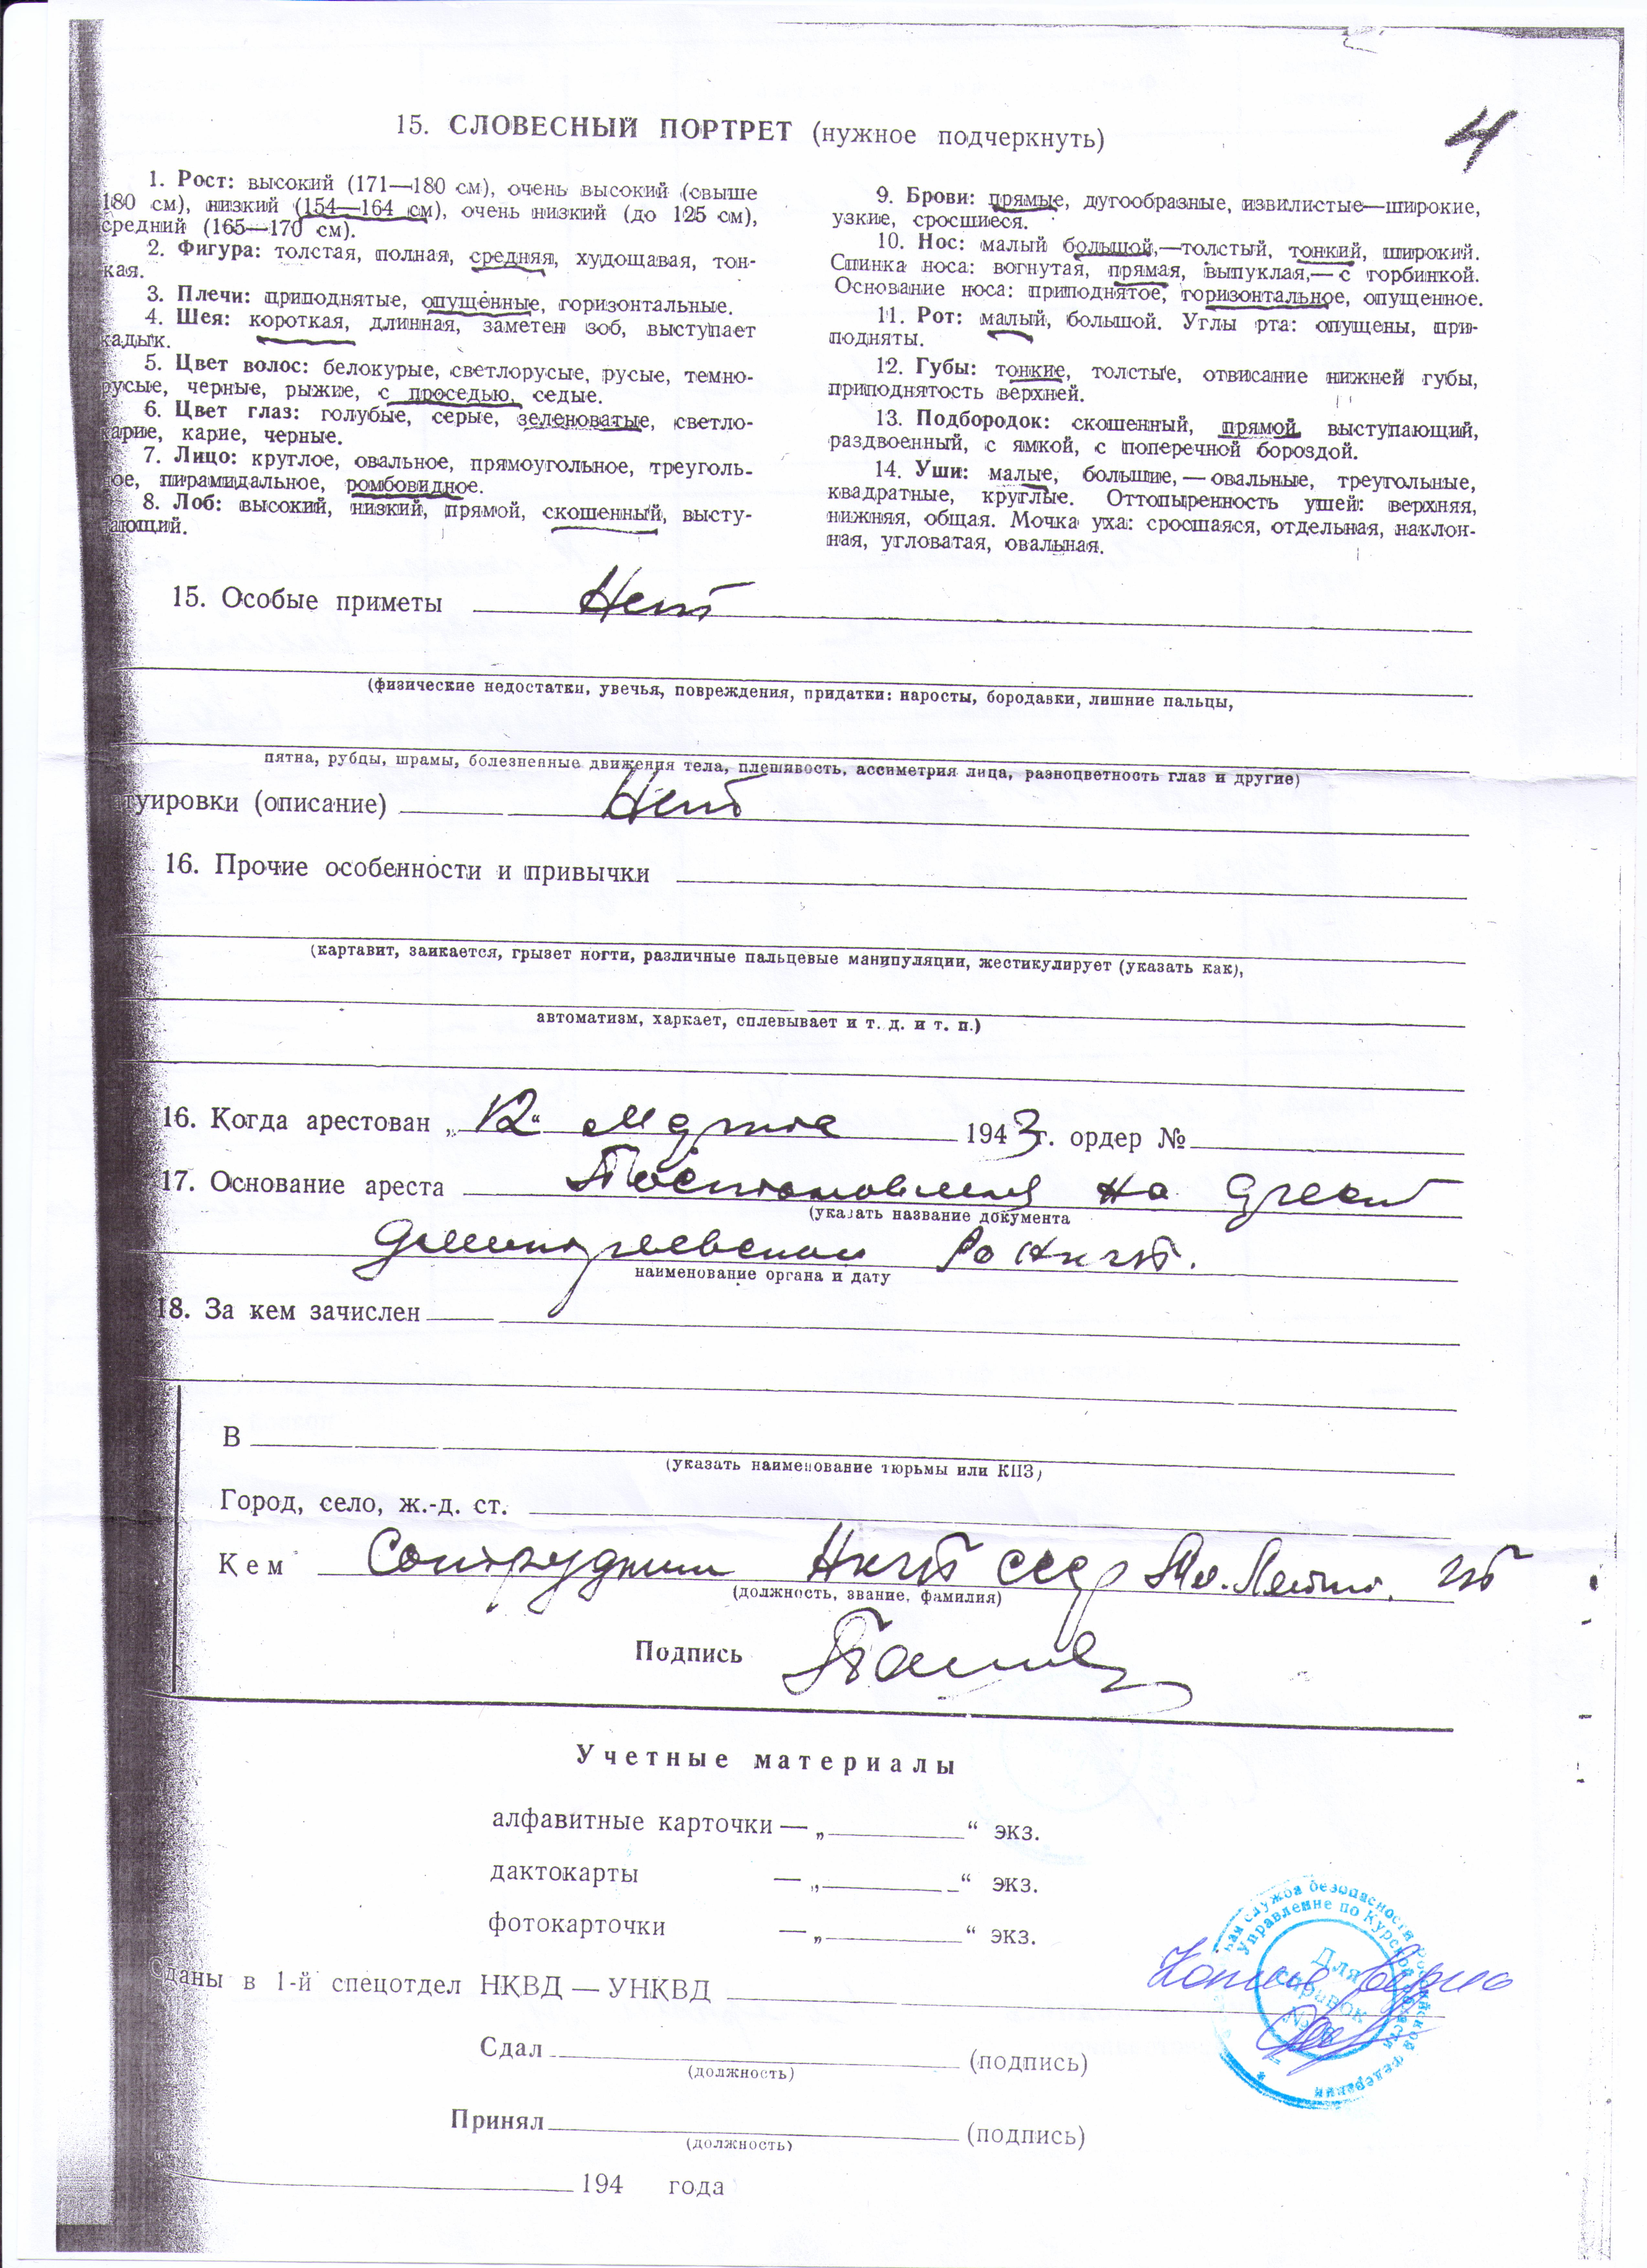 4
15. СЛОВЕСНЫЙ ПОРТРЕТ (нужное подчеркнуть)
1. Рост: высокий (171—180 см), очень высокий (свыше
180 см), низкий (154—164 см), очень низкий (до 125 см),
средний (165—170 см).
2. Фигура: толстая, полная, средняя, худощавая, тон-
кая.
3. Плечи: приподнятые, опущенные, горизонтальные.
4. Шея: короткая, длинная, заметен зоб, выступает
кадык.
5. Цвет волос: белокурые, светлорусые, русые, темно-
русые, черные, рыжие, с проседью, седые.
6. Цвет глаз: голубые, серые, зеленоватые, светло-
карие, карие, черные.
7. Лицо: круглое, овальное, прямоугольное, треуголь-
ное, пирамидальное, ромбовидное.
8. Лоб: высокий, низкий, прямой, скошенный, высту-
пающий.
9. Брови: прямые, дугообразные, извилистые—широкие,
узкие, сросшиеся.
10. Нос: малый большой,—толстый, тонкий, широкий.
Спинка носа: вогнутая, прямая, выпуклая,— с горбинкой.
Основание носа: приподнятое, горизонтальное, опущенное.
11. Рот: малый, большой. Углы рта: опущены, при-
подняты.
12. Губы: тонкие, толстые, отвисание нижней губы,
приподнятость верхней.
13. Подбородок: скошенный, прямой, выступающий,
раздвоенный, с ямкой, с поперечной бороздой.
14. Уши: малые, большие,— овальные, треугольные,
квадратные, круглые. Оттопыренность ушей: верхняя,
нижняя, общая. Мочка уха: сросшаяся, отдельная, наклон-
ная, угловатая, овальная.
15. Особые приметы Нет
(физические недостатки, увечья, повреждения, придатки: наросты, бородавки, лишние пальцы,
пятна, рубцы, шрамы, болезненные движения тела, плешивость, ассиметрия лица, разноцветность глаз и другие)
туировки (описание) Нет
16. Прочие особенности и привычки
(картавит, заикается, грызет ногти, различные пальцевые манипуляции, жестикулирует (указать как),
автоматизм, харкает, сплевывает и т. д. и т. п.)
16. Когда арестован „12“ марта 1943 г. ордер №
17. Основание ареста Постановления на арест
(указать название документа
Дмитриевский Ро Нкгб.
наименование органа и дату
18. За кем зачислен
В
(указать наименование тюрьмы или КПЗ)
Город, село, ж.-д. ст.
Кем Сотрудник Нкгб ссср Мл. Лейт. гб
(должность, звание, фамилия)
Подпись
Учетные материалы
алфавитные карточки — „ “ экз.
дактокарты — „ “ экз.
фотокарточки — „ “ экз.
Сданы в 1-й спецотдел НКВД — УНКВД
Копия верна
служба безопасности Российской Федерации
Управление по Курской области
Для справок
№
Сдал (подпись)
(должность)
Принял (подпись)
(должность)
194 года